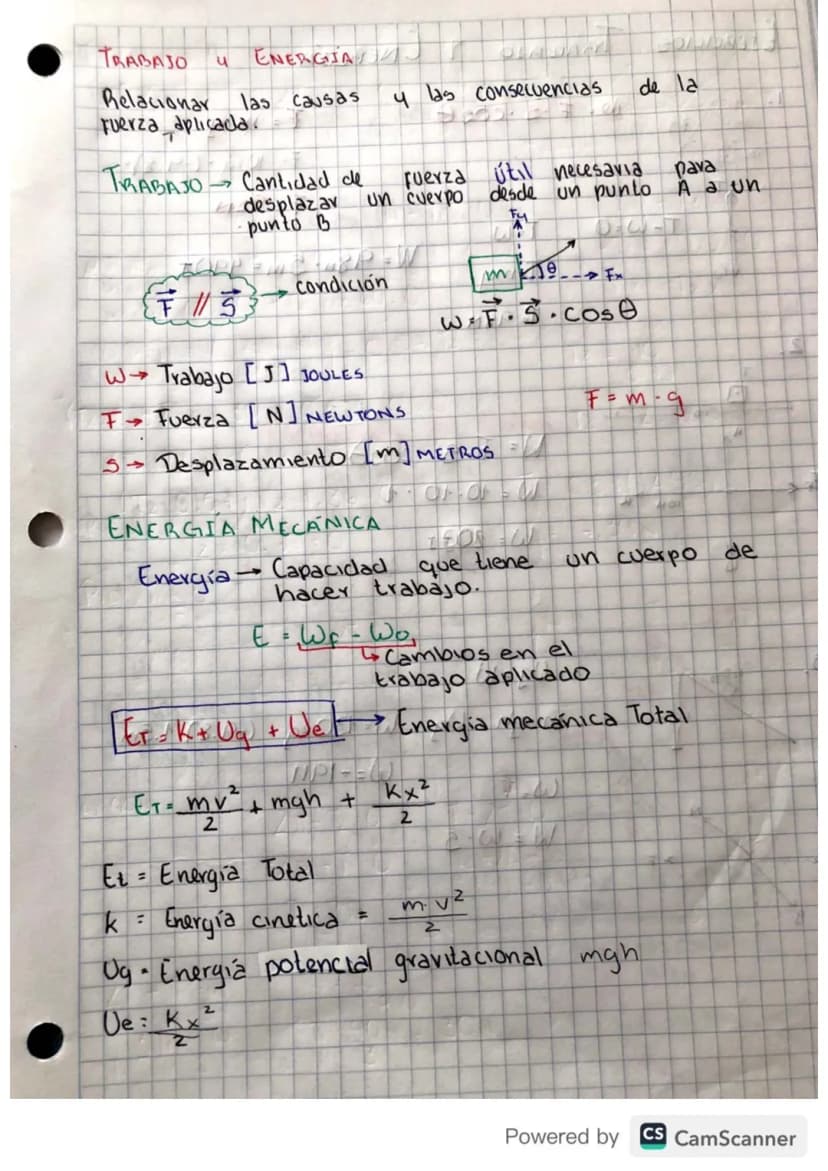 TRABAJO y ENERGÍA
Relacionar las causas y las consecuencias de la
fuerza aplicada.
TRABAJO → Cantidad de fuerza útil necesaria para
desplazar un cuerpo desde un punto A a un
punto B
Fy
m θ Fx
F // S → condición
W = F · S · cos θ
W → Trabajo [J] JOULES
F = m · g
F → Fuerza [N] NEWTONS
S → Desplazamiento [m] METROS
ENERGÍA MECÁNICA
Energía → Capacidad que tiene un cuerpo de
hacer trabajo.
E = WF - Wo
↳ Cambios en el
trabajo aplicado
ET = K + Ug + Ue → Energía mecánica Total
ET = mv²/2 + mgh + Kx²/2
Et = Energía Total
k = Energía cinetica = m·v²/2
Ug = Energía potencial gravitacional mgh
Ue = Kx²/2
Powered by CS CamScanner